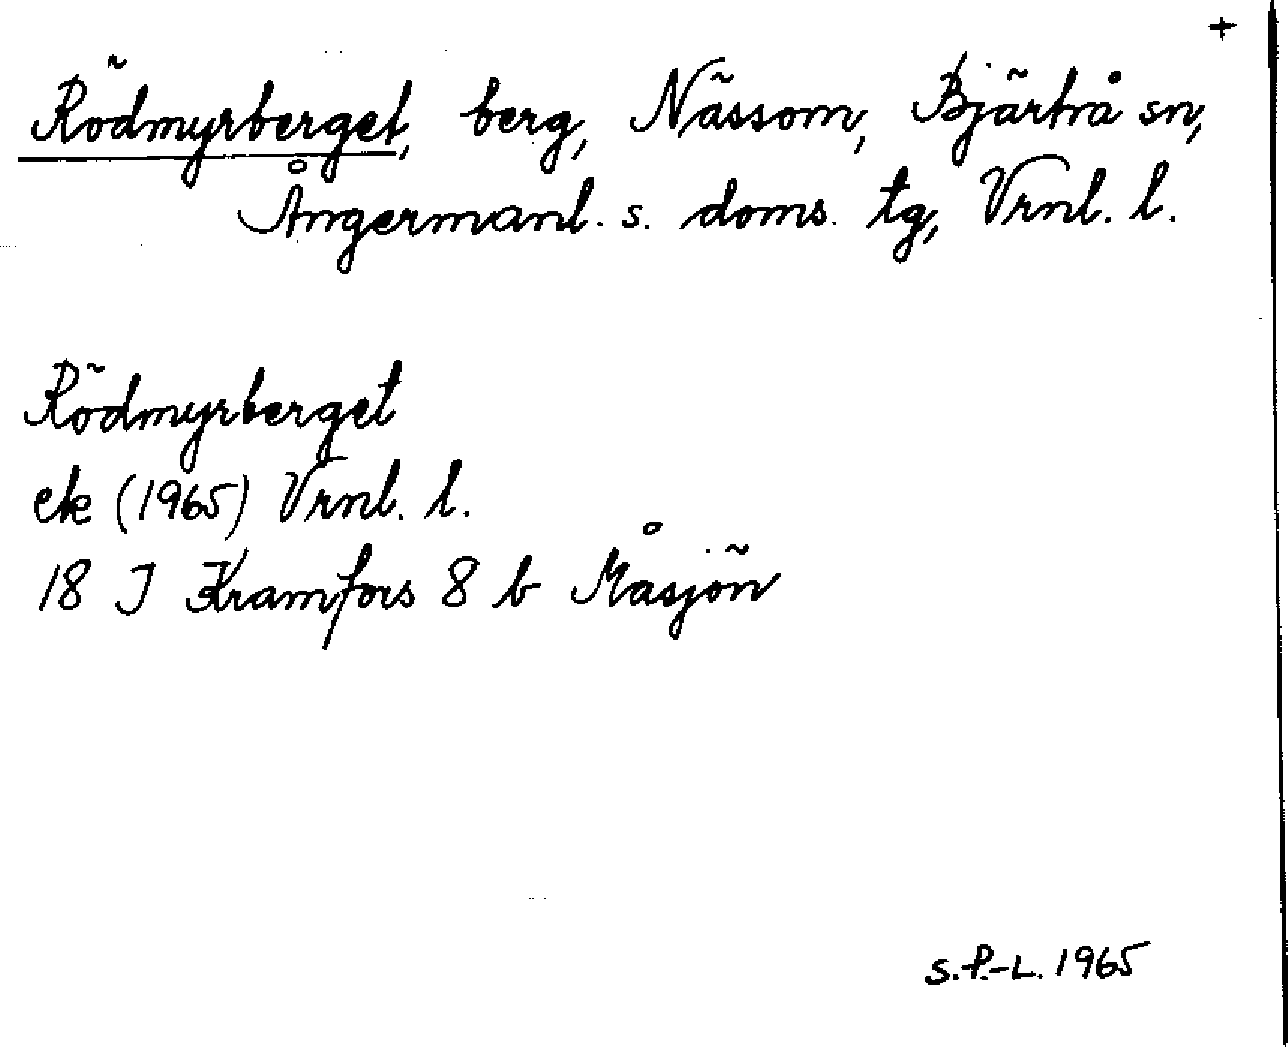 +
Rödmyrberget, berg, Nässom, Bjärtrå sn,
Ångermanl. s. doms. tg, Vrnl. l.
Rödmyrberget
ek (1965) Vrnl. l.
18 J Kramfors 8 b Måsjön
S.P.-L. 1965